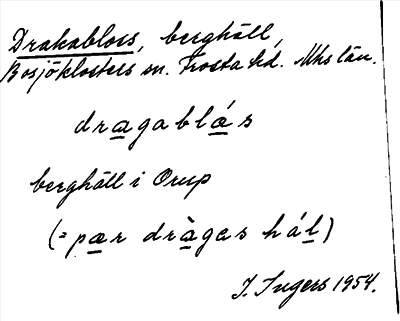 Drakabloss, berghäll,
Bosjöklosters sn. Frosta hd. Mhs län.
dragablás
berghäll i Orup
(= pær dràgas hál)
I. Ingers 1954.